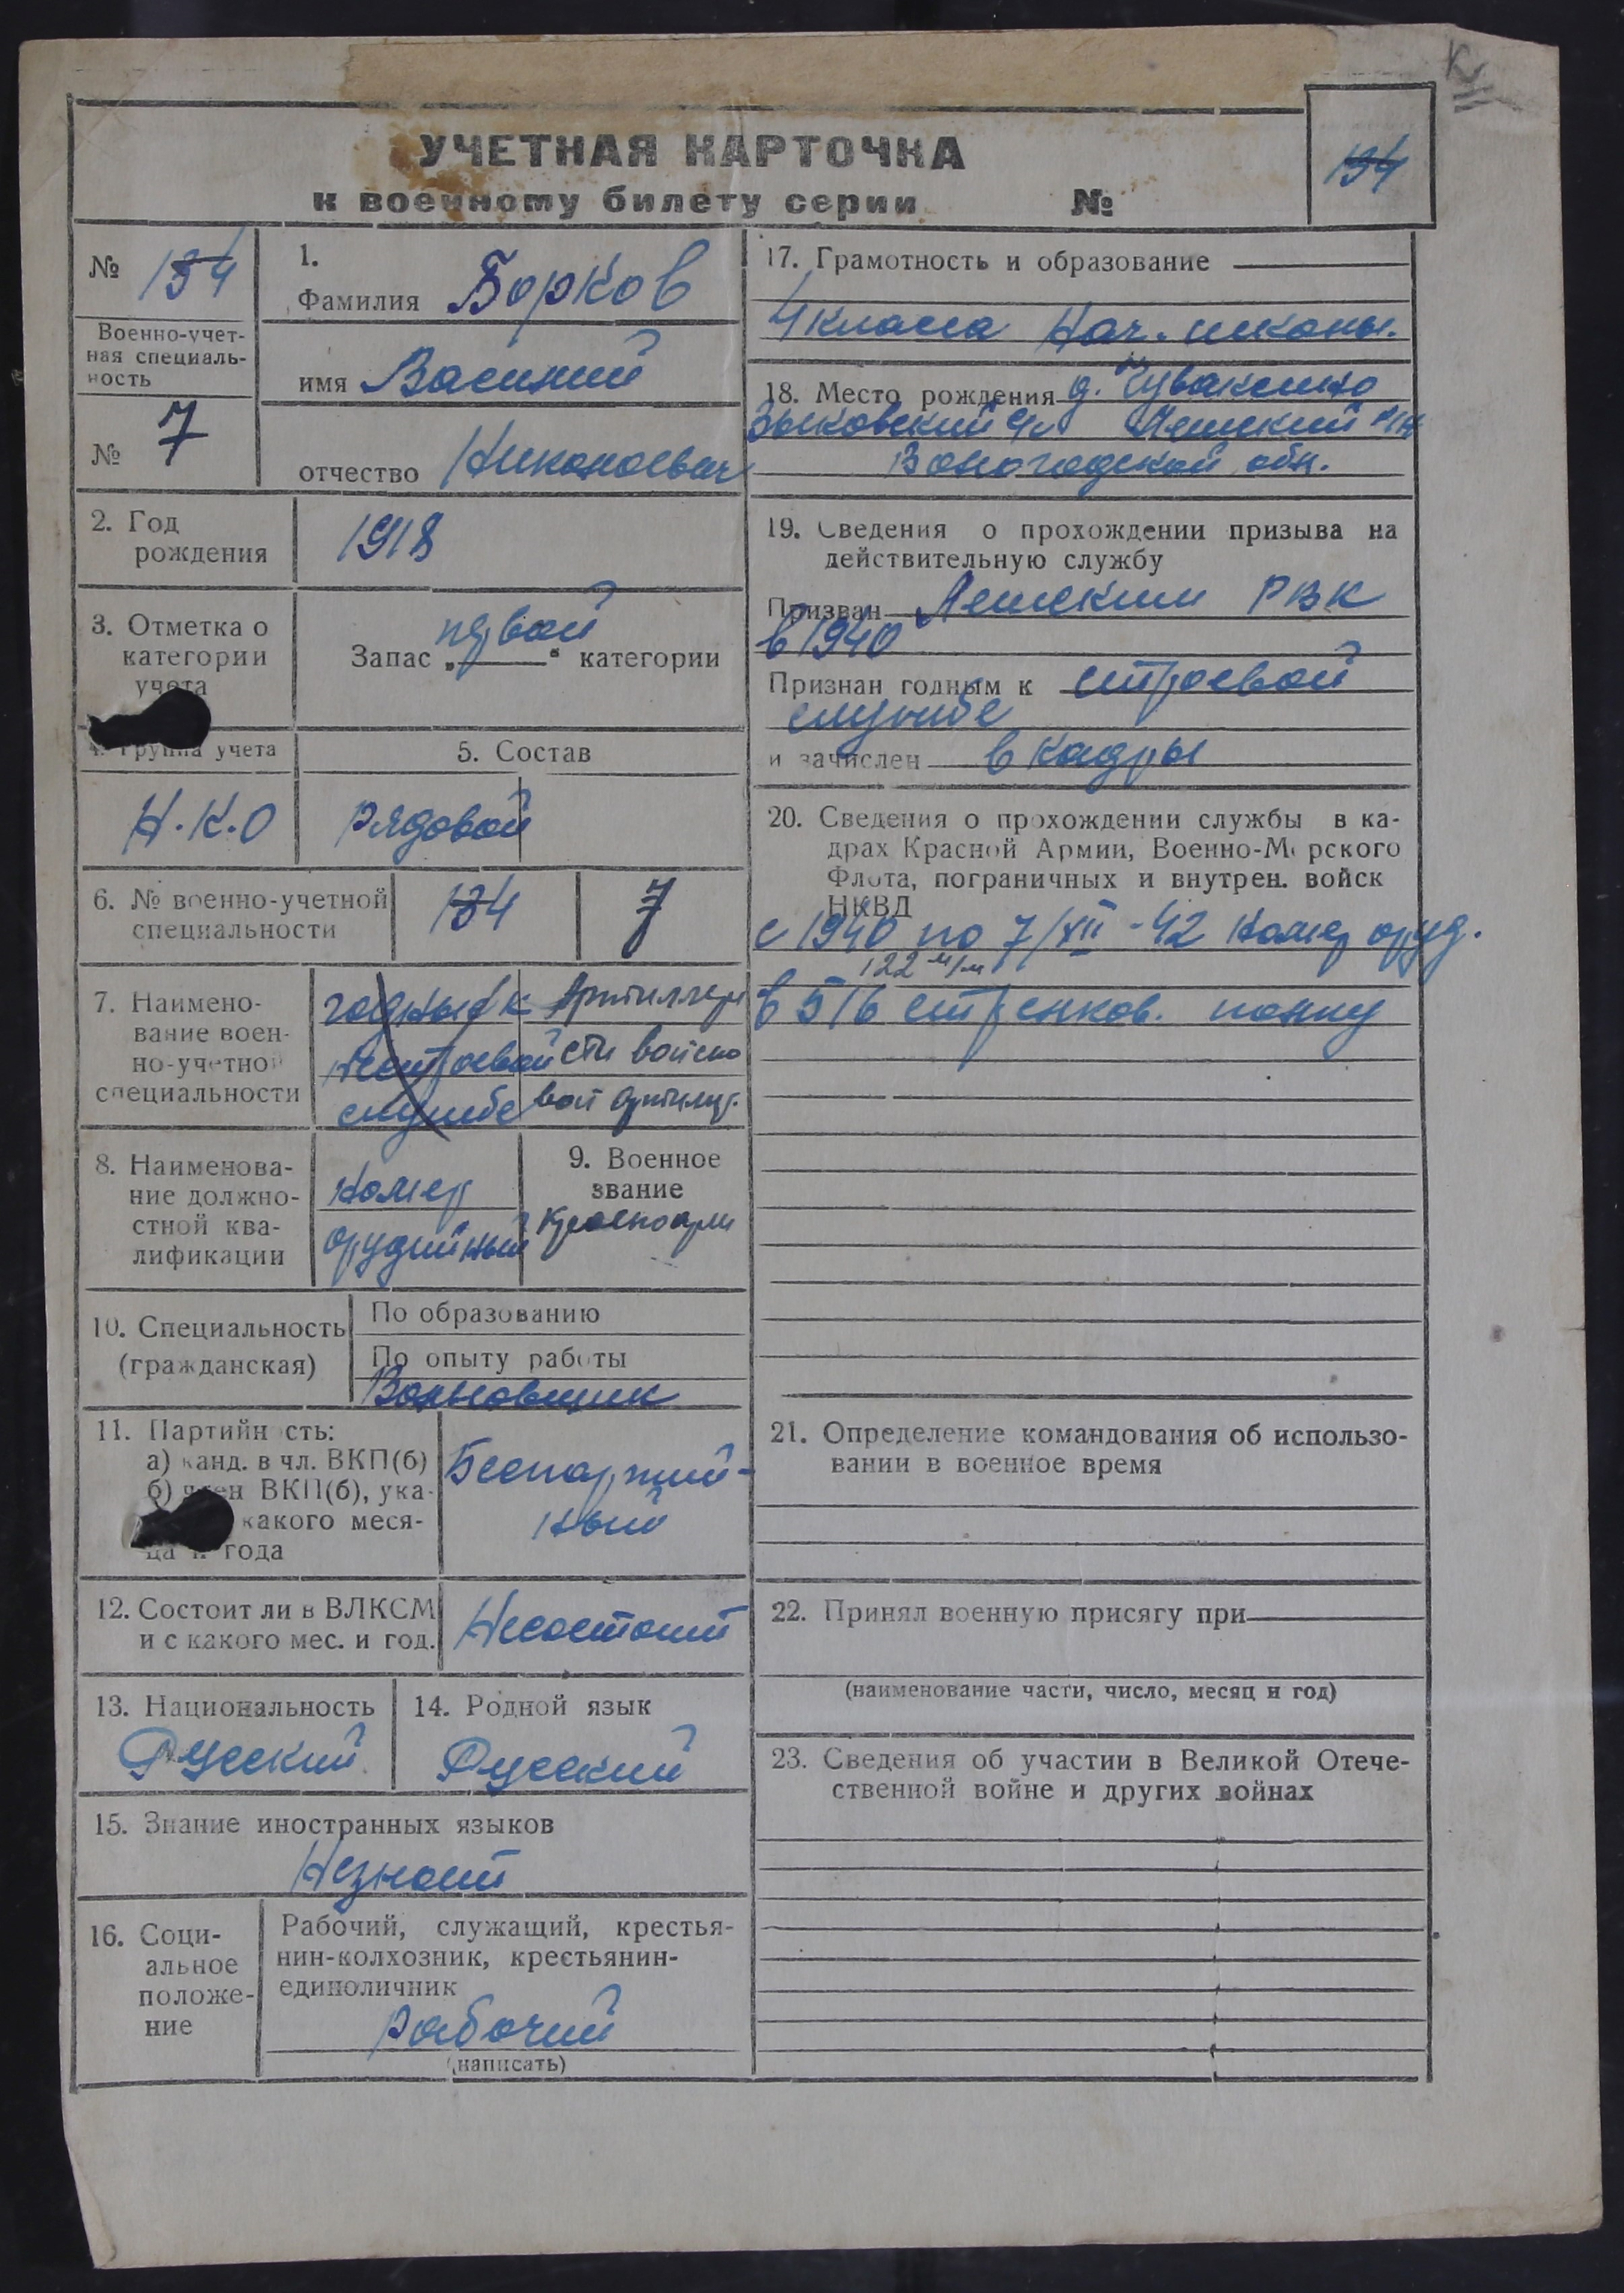 УЧЕТНАЯ КАРТОЧКА
к военному билету серии №
134
№ 134
Военно-учет-
ная специаль-
ность
№ 7
1.
Фамилия Борков
имя Василий
отчество
2. Год
рождения
1918
3. Отметка о
категории
учета
Запас „первой“ категории
4. Группа учета
Н.К.О
5. Состав
рядовой
6. № военно-учетной
специальности
134
7
7. Наимено-
вание воен-
но-учетной
специальности
годный к
нестроевой
службе
Артиллери
сты войско
вой артилер.
8. Наименова-
ние должно-
стной ква-
лификации
номер
орудийный
9. Военное
звание
Красноарм
10. Специальность
(гражданская)
По образованию
По опыту работы
11. Партийн сть:
а) канд. в чл. ВКП(б)
б) член ВКП(б), ука-
какого меся-
ца и года
Беспартий-
ный
12. Состоит ли в ВЛКСМ
и с какого мес. и год.
Несостоит
13. Национальность
Русский
14. Родной язык
Русский
15. Знание иностранных языков
Незнает
16. Соци-
альное
положе-
ние
Рабочий, служащий, крестья-
нин-колхозник, крестьянин-
единоличник
рабочий
(написать)
17. Грамотность и образование
4 класса Нач. школы.
18. Место рождения д.
Вологодской обл.
19. Сведения о прохождении призыва на
действительную службу
Призван РВК
в 1940
Признан годным к строевой
службе
и зачислен в кадры
20. Сведения о прохождении службы в ка-
драх Красной Армии, Военно-Морского
Флота, пограничных и внутрен. войск
НКВД
с 1940 по 7/XII-42 номер оруд.
122 м/м
в 516 стрелков. полку
21. Определение командования об использо-
вании в военное время
22. Принял военную присягу при
(наименование части, число, месяц и год)
23. Сведения об участии в Великой Отече-
ственной войне и других войнах